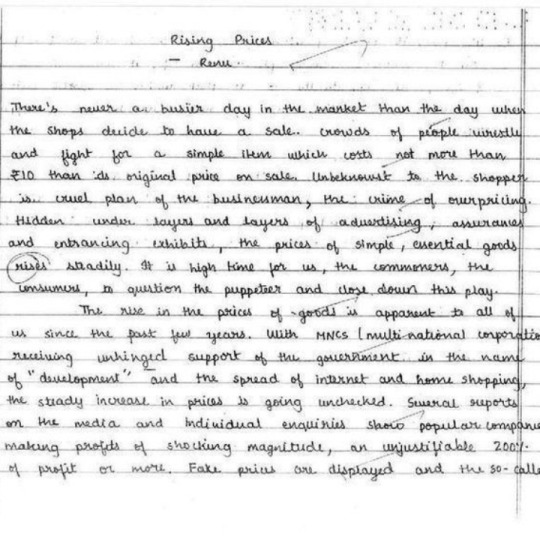 Rising Prices
- Renu.
There's never a busier day in the market than the day when
the shops decide to have a sale. Crowds of people wrestle
and fight for a simple item which costs not more than
₹10 than its original price on sale. Unbeknownst to the shopper
is cruel plan of the businessman, the crime of ourpricing.
Hidden under layers and layers of advertising, assurances
and entrancing exhibits, the prices of simple, essential goods
rises steadily. It is high time for us, the commoners, the
consumers, to question the puppeteer and close down this play.
The rise in the prices of goods is apparent to all of
us since the past few years. With MNCs (multi-national corporatio
receiving unhinged support of the government in the name
of "development" and the spread of internet and home shopping,
the steady increase in prices is going unchecked. Several reports
on the media and individual enquiries show popular companie
making profits of shocking magnitude, an unjustifiable 200%
of profit or more. Fake prices are displayed and the so-calle